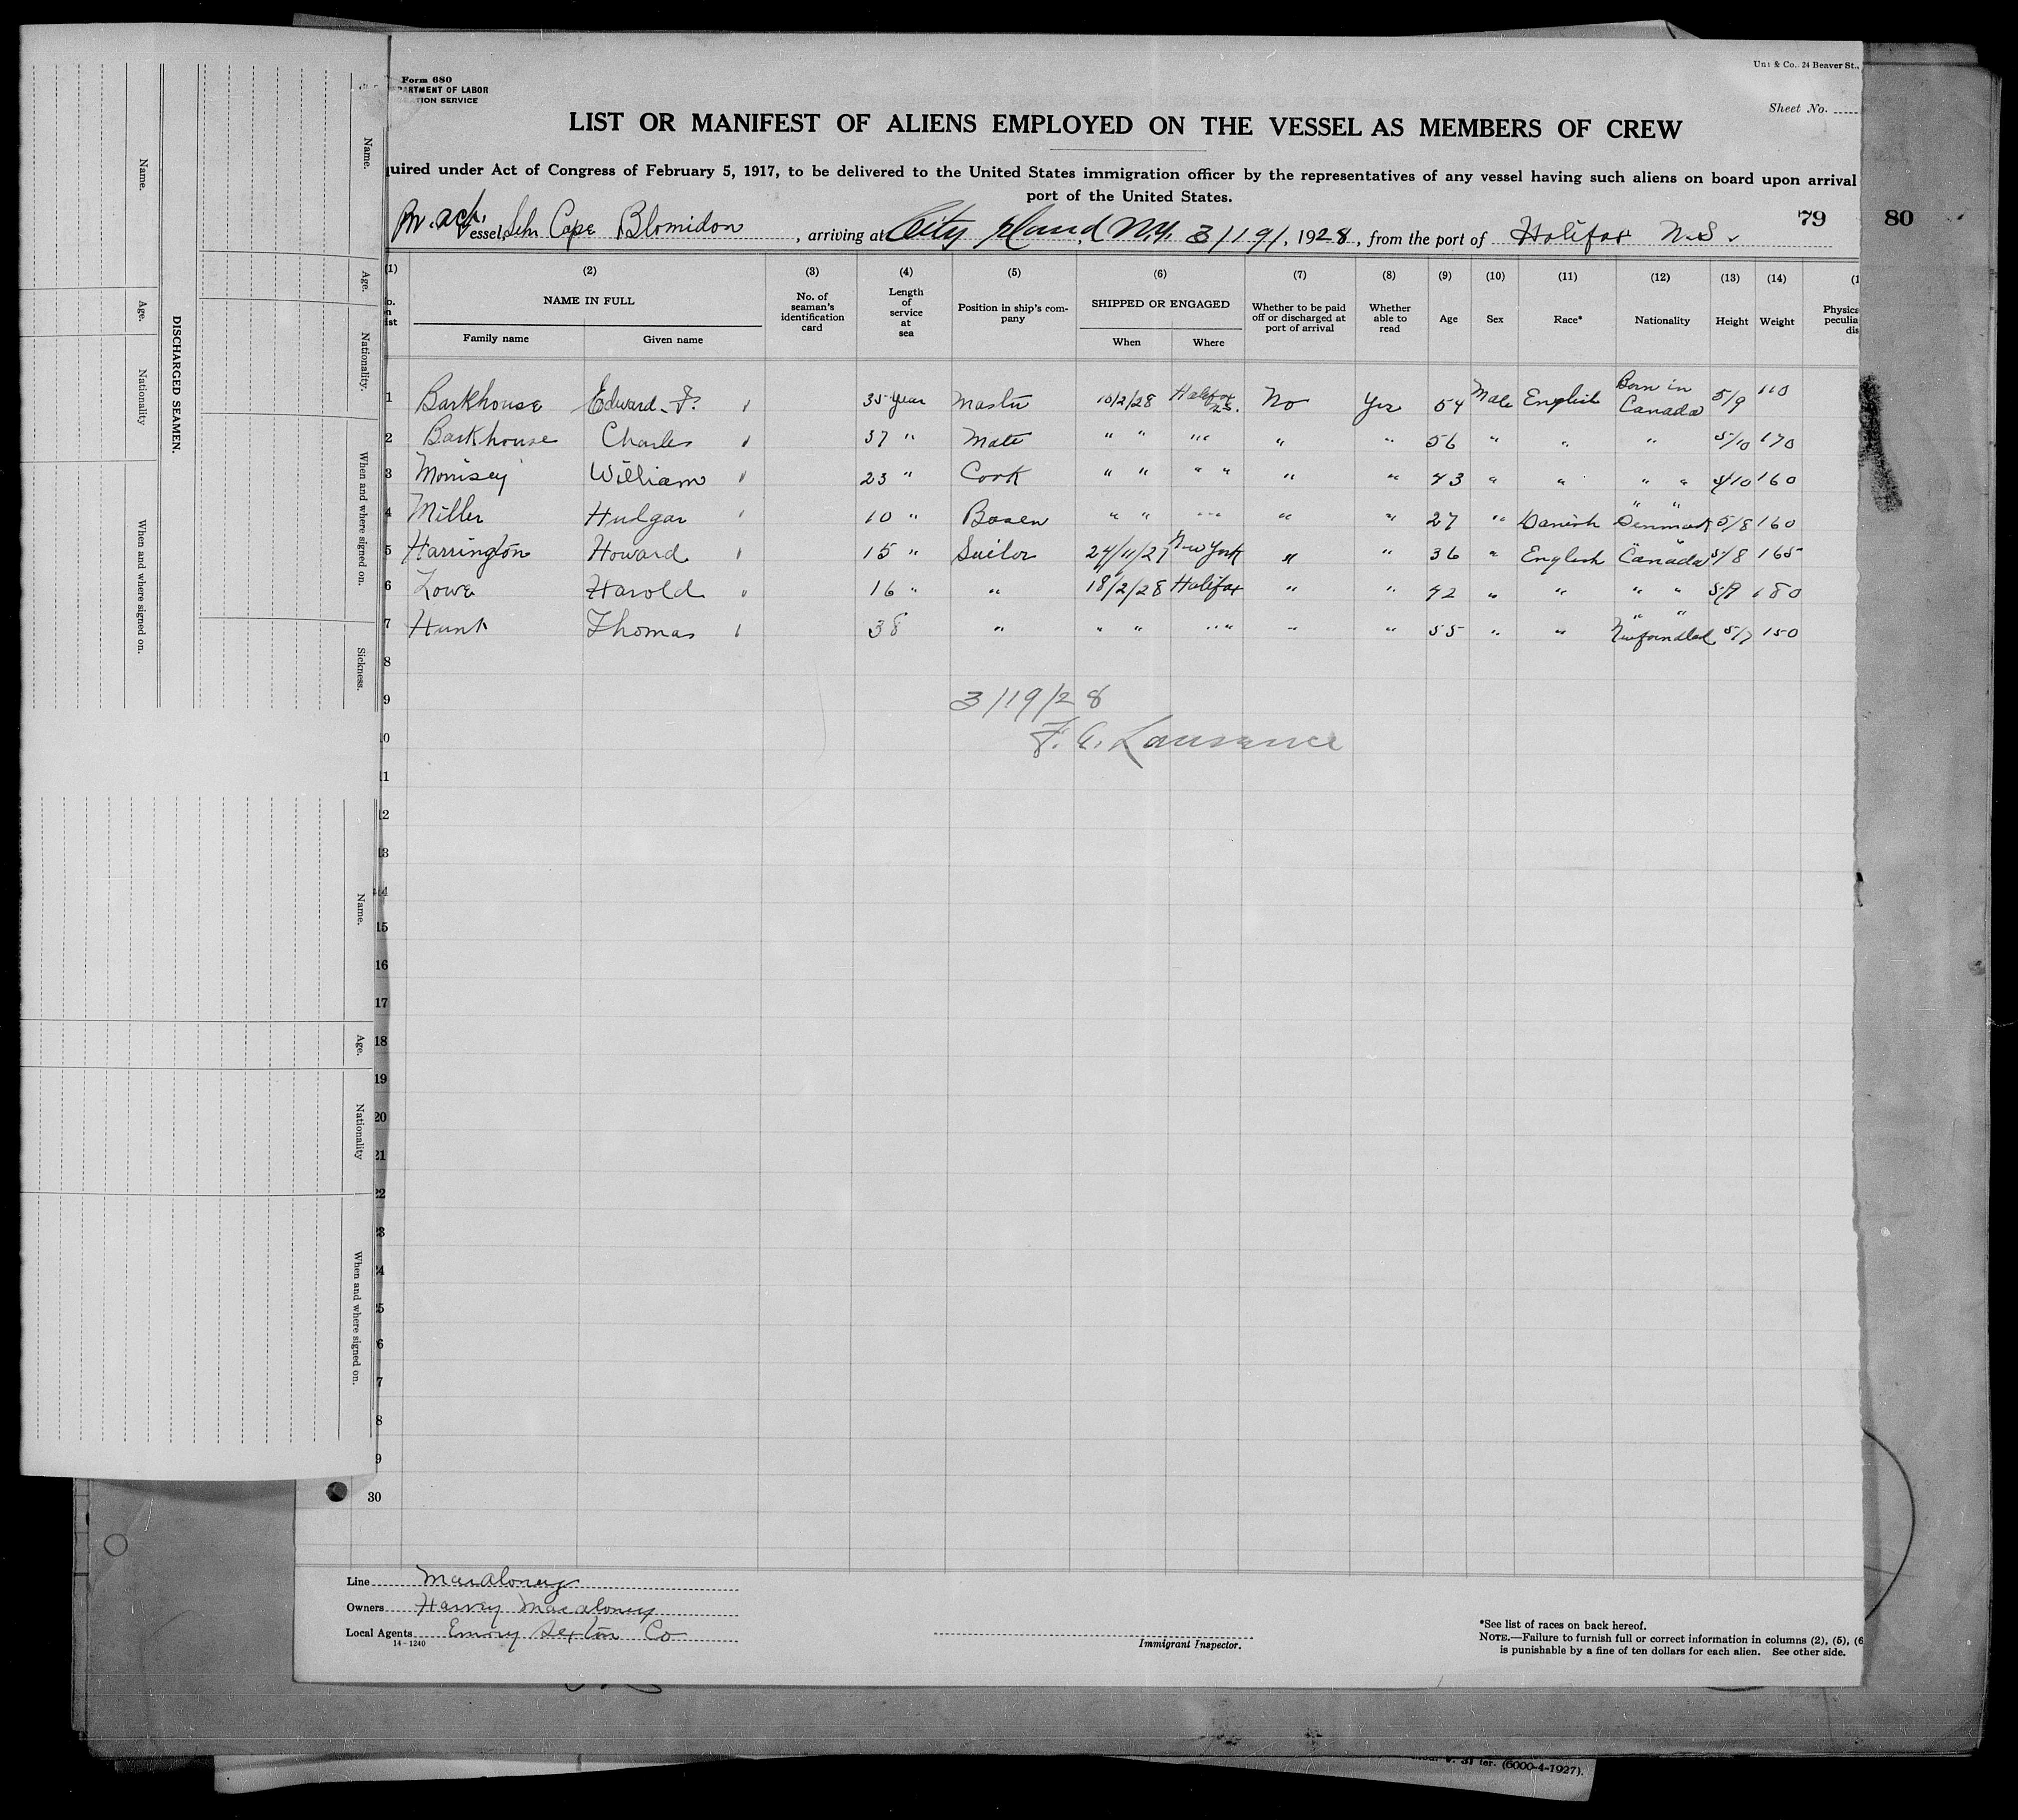 Form 680
PARTMENT OF LABOR
ATION SERVICE
& Co., 24 Beaver St.,
Sheet No.
LIST OR MANIFEST OF ALIENS EMPLOYED ON THE VESSEL AS MEMBERS OF CREW
uired under Act of Congress of February 5, 1917, to be delivered to the United States immigration officer by the representatives of any vessel having such aliens on board upon arrival
port of the United States.
79 80
essel Schr Cape Blomidon, arriving at City Island N.Y. 3/19/, 1928, from the port of Halifax N.S.
(1) (2) (3) (4) (5) (6) (7) (8) (9) (10) (11) (12) (13) (14) (1
NAME IN FULL
Family name Given name
No. of seaman's identification card
Length of service at sea
Position in ship's company
SHIPPED OR ENGAGED
When Where
Whether to be paid off or discharged at port of arrival
Whether able to read
Age
Sex
Race*
Nationality
Height
Weight
Physica
peculia
dis
1 Barkhouse Edward F. 35 year Master 10/2/28 Halifax N.S. No Yes 54 Male English Born in Canada 5/9 110
2 Barkhouse Charles 37 " Mate " " " " " " 56 " " " 5/10 170
3 Morrisey William 23 " Cook " " " " " " 43 " " " " 4/10 160
4 Miller Hudgar 10 " Bosen " " " " " " 27 " Danish " " Denmark 5/8 160
5 Harrington Howard 15 " Sailor 24/11/27 New York " " 36 " English " " Canada 5/8 165
6 Lowe Harold 16 " " 18/2/28 Halifax " " 42 " " " " 5/9 180
7 Hunt Thomas 38 " " " " " " " 55 " " " " Newfoundland 5/7 150
8
9
10
11
12
13
14
15
16
17
18
19
20
21
22
23
24
25
26
27
28
29
30
3/19/28
F. A. Lawrence
Line Macaloney
Owners Harvey Macaloney
Local Agents Emery Sexton Co
14-1240
Immigrant Inspector.
*See list of races on back hereof.
NOTE.—Failure to furnish full or correct information in columns (2), (5), (6
is punishable by a fine of ten dollars for each alien. See other side.
DISCHARGED SEAMEN.
Name.
Age.
Nationality
When and where signed on.
Name.
Age.
Nationality.
When and where signed on.
Sickness.
Name.
Age.
Nationality
When and where signed on.
(6000-4-1927).